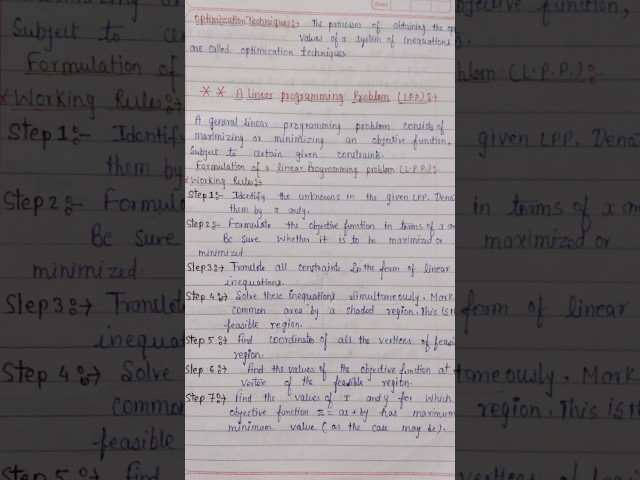 Optimization Techniques:→ The processes of obtaining the op
values of a system of inequations
are called optimization techniques
** A Linear programming Problem (LPP):→
A general linear programming problem consists of
maximizing or minimizing an objective function,
Subject to certain given constraints.
Formulation of a linear Programming problem (L.P.P.):-
*Working Rules:→
Step 1:- Identify the unknowns in the given LPP. Deno
them by x and y.
Step 2:- Formulate the objective function in terms of x an
Be Sure Whether it is to be maximized or
minimized.
Slep 3:→ Translate all constraints in the form of linear
inequations.
Step 4:→ Solve these inequations simultaneously. Mark
common area by a shaded region. This is th
feasible region.
Step 5:→ Find coordinates of all the vertices of feasi
region.
Slep 6:→ Find the values of the objective function at
Vertex of the feasible region.
Step 7:→ Find the values of x and y for Which
objective function z = ax + by has maximum
minimum value (as the case may be).